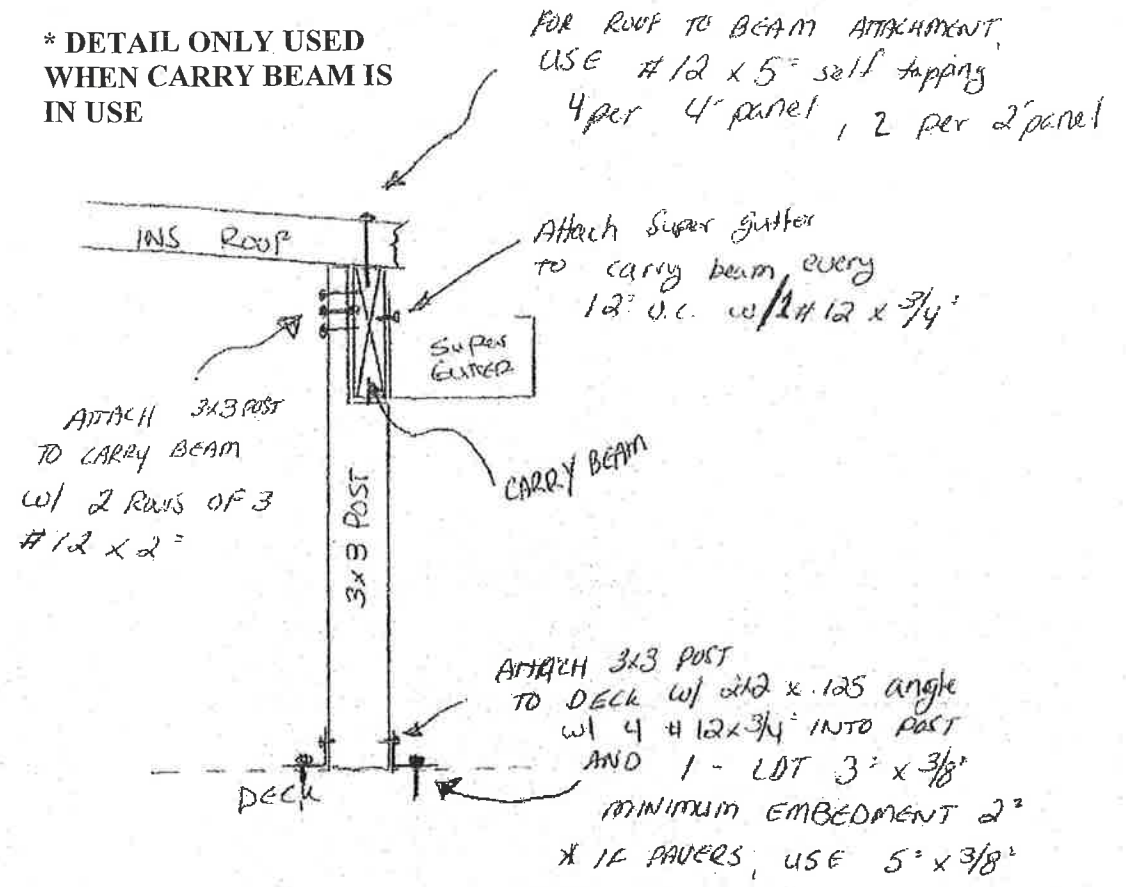 * DETAIL ONLY USED
WHEN CARRY BEAM IS
IN USE
FOR ROOF TO BEAM ATTACHMENT,
USE #12 x 5" self tapping
4 per 4' panel, 2 per 2' panel
INS ROOF
Attach Super gutter
TO carry beam every
12" O.C. w/ 1 #12 x 3/4"
Super
GUTTER
ATTACH 3x3 POST
TO CARRY BEAM
w/ 2 Rows OF 3
#12 x 2"
CARRY BEAM
3x3 POST
ATTACH 3x3 POST
TO DECK w/ 2x2 x .125 angle
w/ 4 #12x3/4" INTO POST
AND 1 - LDT 3" x 3/8"
MINIMUM EMBEDMENT 2"
* IF PAVERS, USE 5" x 3/8"
DECK